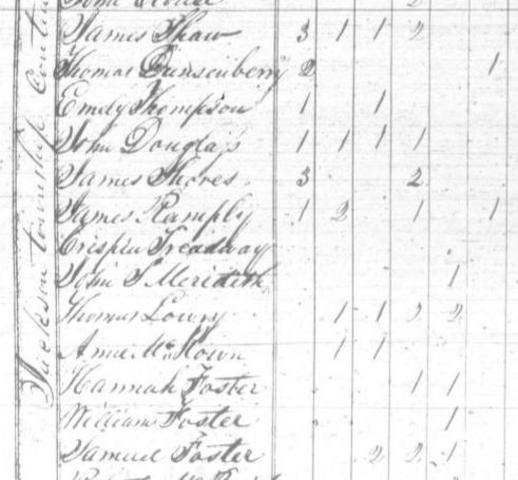 Jackson township Contin
James Shaw 3 1 1 2
Thomas Dunsenberry 2 1
Emely Thompson 1 1
John Douglass 1 1 1 1
James Shores 3 2
James Ramply 1 2 1 1
Crispin Treadway
John S Merideth 1
Thomas Lowry 1 1 2 2
Anne McKown 1 1
Hannah Foster 1 1
William Foster 1
Samuel Foster 2 2 1